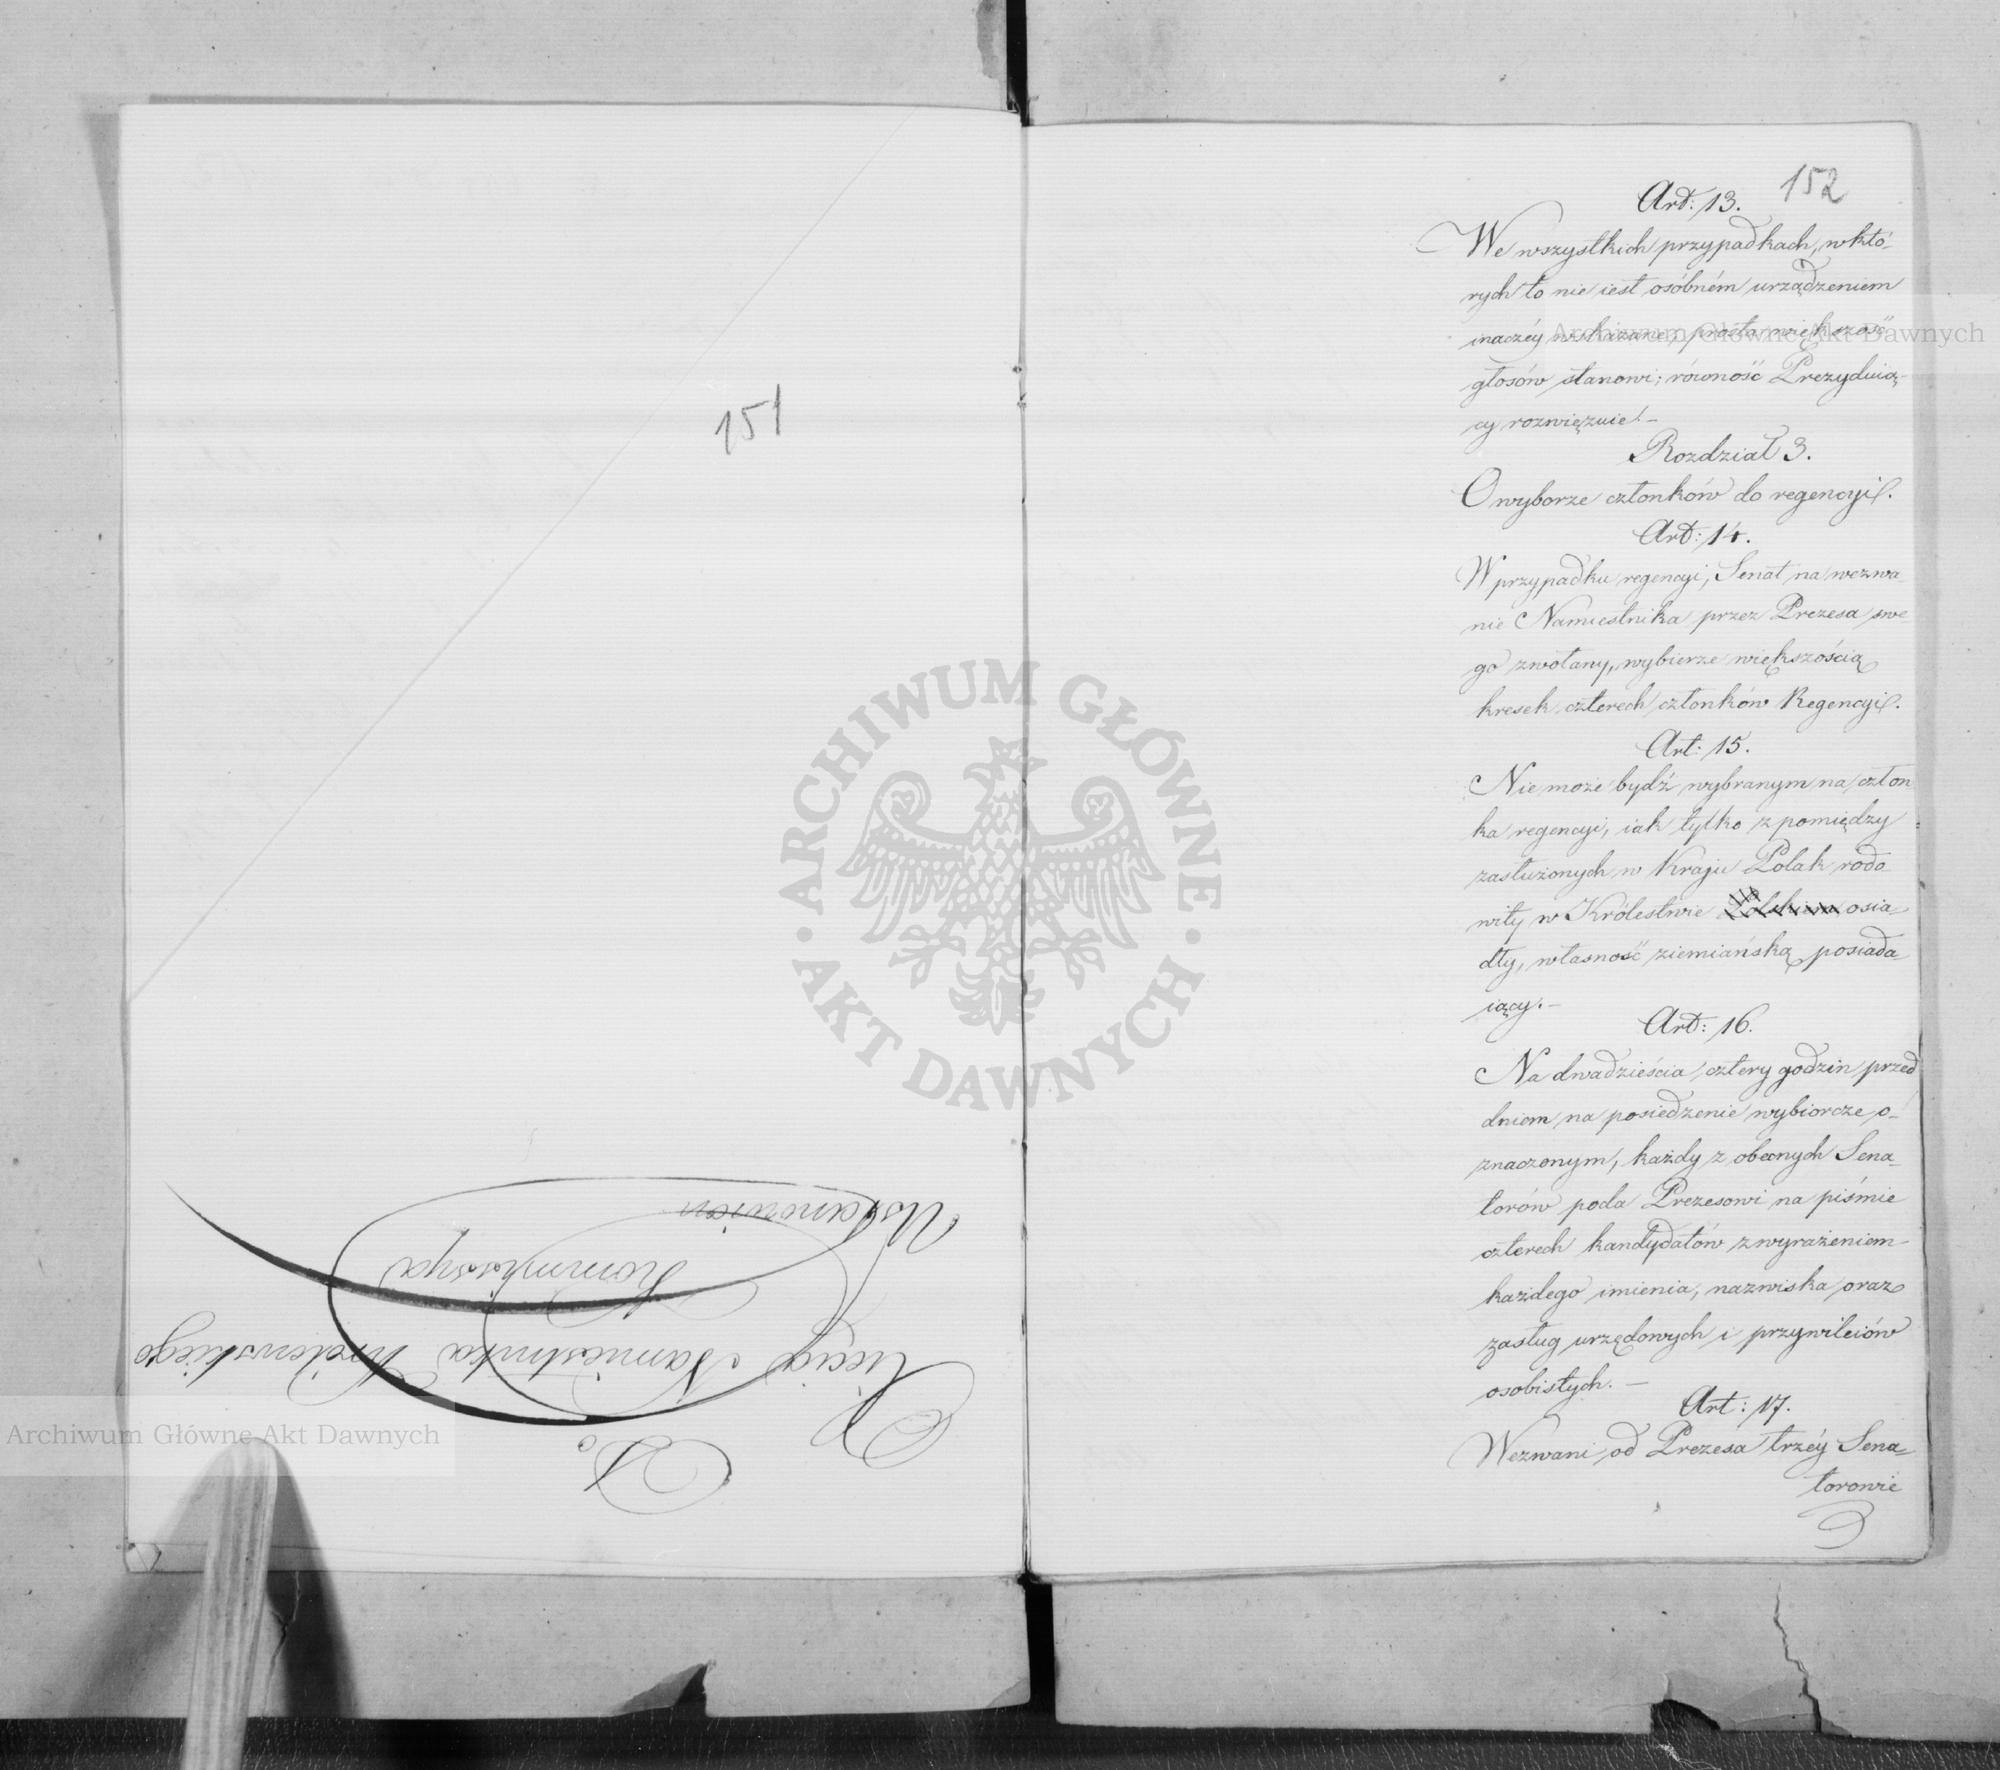 151
Do
Xięcia Namiestnika Królewskiego
Kommissya
152
Art: 13.
We wszystkich przypadkach, w któ-
rych to nie iest osóbném urządzeniem
inaczéy wskazane, prosta większość
głosów stanowi; równość Prezyduią-
cy rozwięzuie. -
Rozdział 3.
O wyborze członków do regencyi.
Art: 14.
W przypadku regencyi, Senat na wezwa-
nie Namiestnika przez Prezesa swe
go zwołany, wybierze większością
kresek czterech członków Regencyi.
Art: 15.
Nie może bydź wybranym na człon
ka regencyi, iak tylko z pomiędzy
zasłużonych w Kraju Polak rodo
wity w Królestwie Polskim osia-
dły, własność ziemiańską posiada-
iący. -
Art: 16.
Na dwadzieścia cztery godzin przed
dniem na posiedzenie wybiorcze o-
znaczonym, każdy z obecnych Sena-
torów poda Prezesowi na piśmie
czterech kandydatów z wyrażeniem
każdego imienia, nazwiska oraz
zasług urzędowych i przywileiów
osobistych. -
Art: 17.
Wezwani od Prezesa trzéy Sena-
torowie
ARCHIWUM GŁÓWNE · AKT DAWNYCH ·
Archiwum Główne Akt Dawnych
Archiwum Główne Akt Dawnych